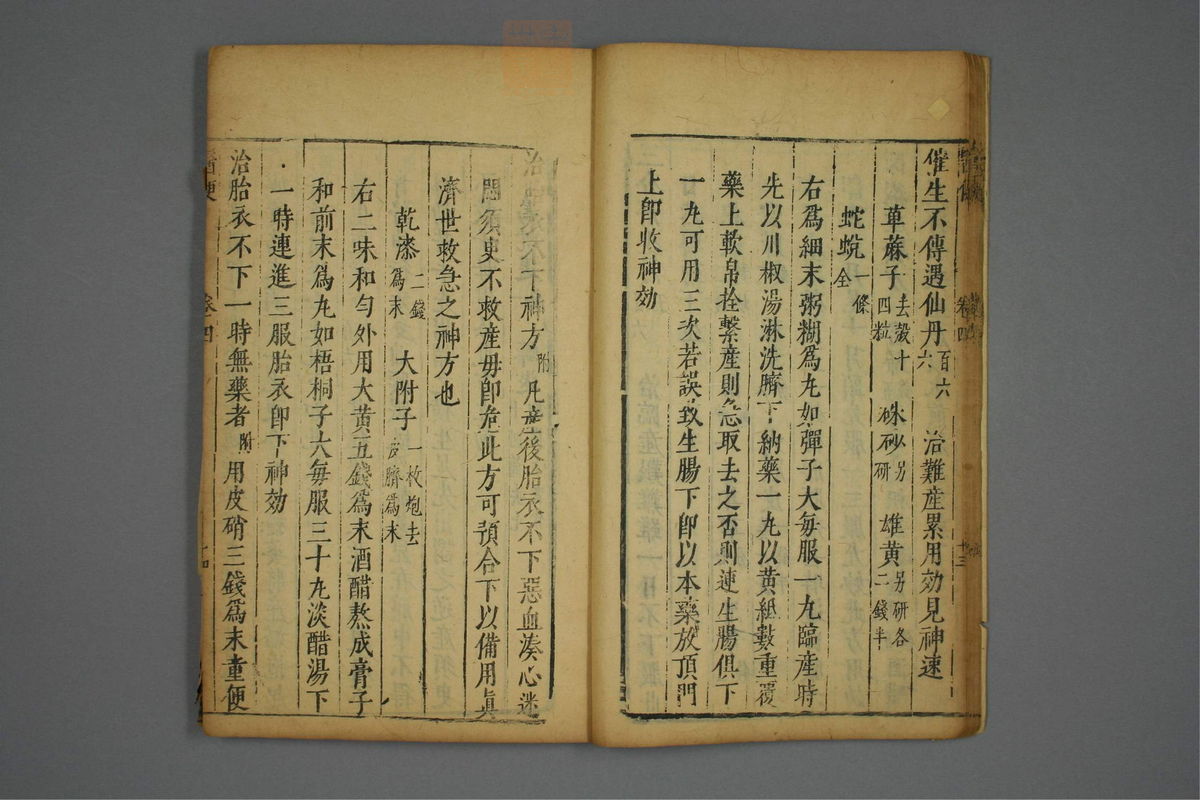 催生不傳遇仙丹百六六 治難產累用効見神速
萆蔴子去殼十四粒 硃砂另研 雄黃另研各二錢半
蛇蛻一條全
右爲細末粥糊爲丸如彈子大每服一丸臨產時
先以川椒湯淋洗臍下納藥一丸以黃紙數重覆
藥上軟帛拴繫產則急取去之否則連生腸俱下
一丸可用三次若誤致生腸下卽以本藥放頂門
上卽收神効
卷四
十三
治 衣不下神方附 凡產後胎衣不下惡血湊心迷
悶須臾不救產毋卽危此方可預合下以備用眞
濟世救急之神方也
乾漆二錢爲末 大附子一枚炮去皮臍爲末
右二味和勻外用大黃五錢爲末酒醋熬成膏子
和前末爲丸如梧桐子大每服三十丸淡醋湯下
一時連進三服胎衣卽下神効
治胎衣不下一時無藥者附 用皮硝三錢爲末童便
卷四